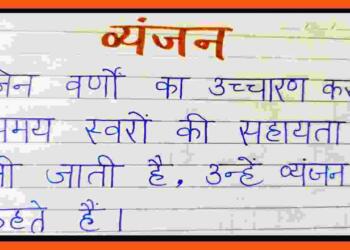 व्यंजन
जिन वर्णों का उच्चारण कर
समय स्वरों की सहायता
ली जाती है, उन्हें व्यंजन
कहते हैं।